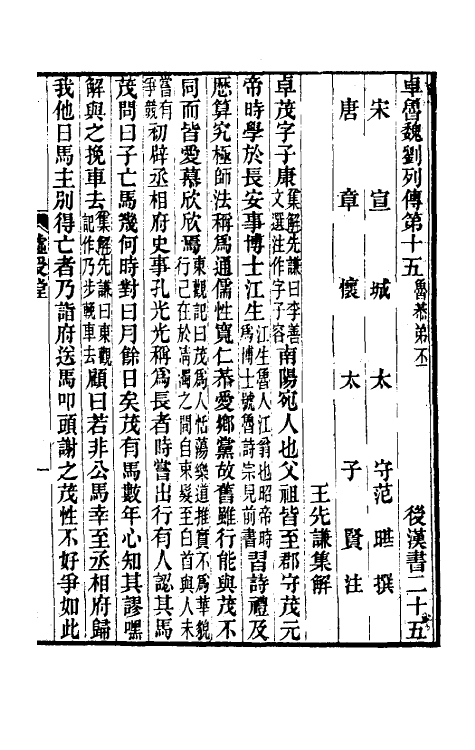 卓魯魏劉列傳第十五 魯恭弟丕 後漢書二十五
宋宣城太守范曄撰
唐章懷太子賢注
王先謙集解
卓茂字子康集解先謙曰李善文選注作字子容南陽宛人也父祖皆至郡守茂元
帝時學於長安事博士江生江生魯人江翁也昭帝時爲博士號魯詩宗見前書習詩禮及
歷算究極師法稱爲通儒性寬仁恭愛鄉黨故舊雖行能與茂不
同而皆愛慕欣欣焉東觀記曰茂爲人恬蕩樂道推實不爲華貌行己在於清濁之間自束髮至白首與人未
嘗有爭競初辟丞相府史事孔光光稱爲長者時嘗出行有人認其馬
茂問曰子亡馬幾何時對曰月餘日矣茂有馬數年心知其謬嘿
解與之挽車去集解先謙曰東觀記作乃步輓車去顧曰若非公馬幸至丞相府歸
我他日馬主別得亡者乃詣府送馬叩頭謝之茂性不好爭如此
虛受堂
一